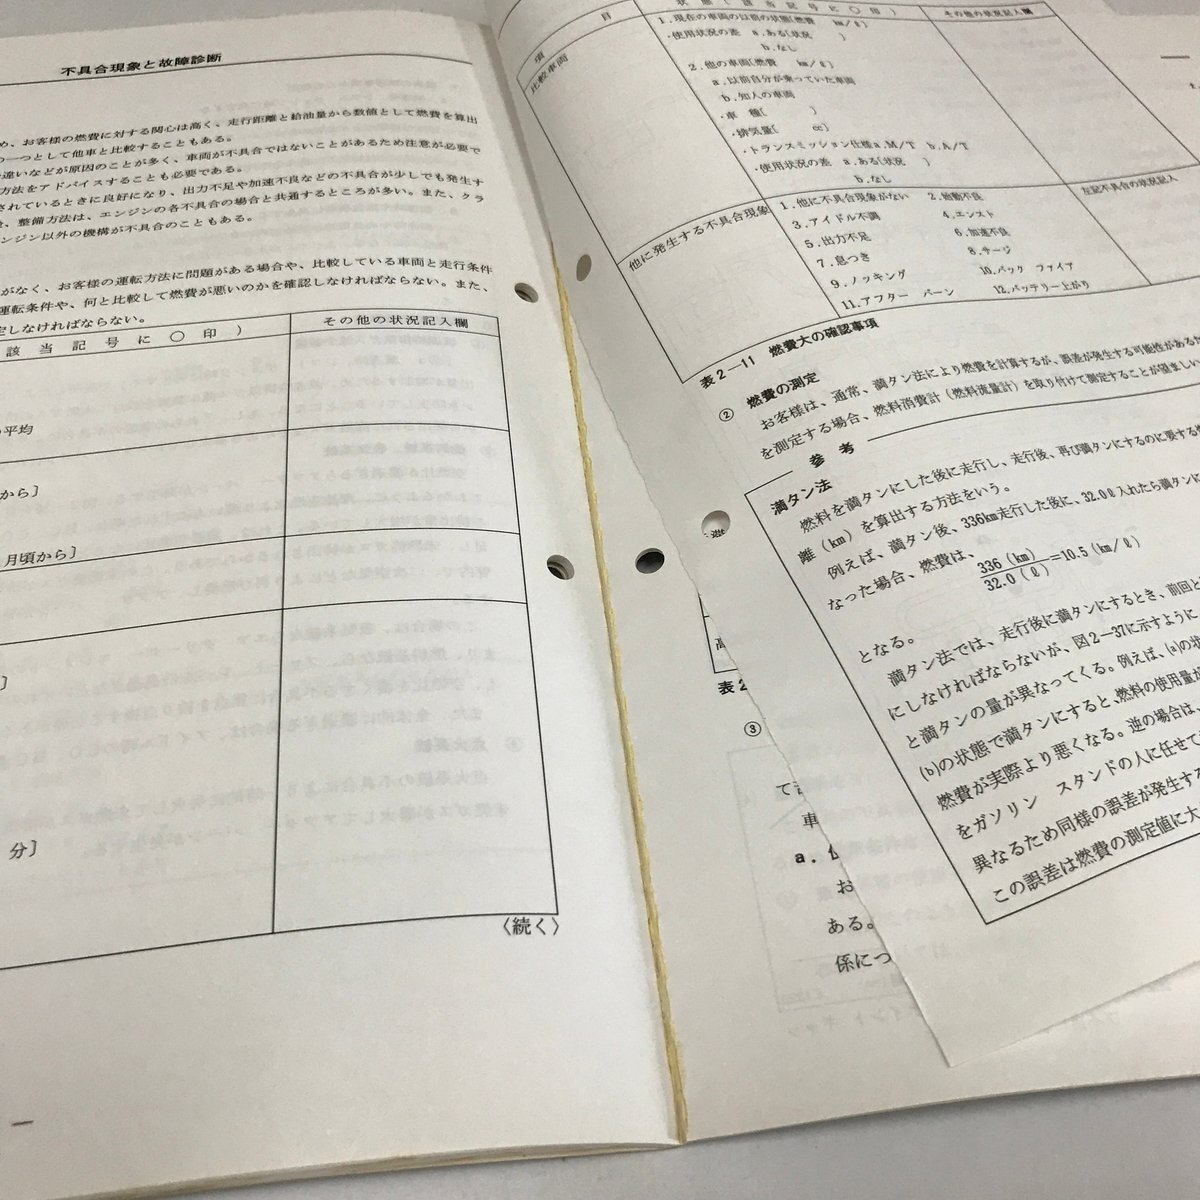 不具合現象と故障診断
め、お客様の燃費に対する関心は高く、走行距離と給油量から数値として燃費を算出
の一つとして他車と比較することもある。
違いなどが原因のことが多く、車両が不具合ではないことがあるため注意が必要で
方法をアドバイスすることも必要である。
されているときに良好になり、出力不足や加速不良などの不具合が少しでも発生す
、整備方法は、エンジンの各不具合の場合と共通するところが多い。また、クラ
ンジン以外の機構が不具合のこともある。
がなく、お客様の運転方法に問題がある場合や、比較している車両と走行条件
運転条件や、何と比較して燃費が悪いのかを確認しなければならない。また、
定しなければならない。
該当記号に〇印)
その他の状況記入欄
の平均
から〕
月頃から〕
〕
分〕
〈続く〉
項 目
状態(該当記号に〇印)
その他の状況記入欄
比較車両
1.現在の車両の以前の状態〔燃費 km/ℓ〕
・使用状況の差 a.ある〔状況 〕
b.なし
2.他の車両〔燃費 km/ℓ〕
a.以前自分が乗っていた車両
b.知人の車両
・車 種〔 〕
・排気量〔 cc〕
・トランスミッション仕様 a.M/T b.A/T
・使用状況の差 a.ある〔状況 〕
b.なし
他に発生する不具合現象
1.他に不具合現象がない 2.始動不良
3.アイドル不調 4.エンスト
5.出力不足 6.加速不良
7.息つき 8.サージ
9.ノッキング 10.バック ファイア
11.アフター バーン 12.バッテリー上がり
左記不具合の状況記入
表2―11 燃費大の確認事項
② 燃費の測定
お客様は、通常、満タン法により燃費を計算するが、誤差が発生する可能性があるた
を測定する場合、燃料消費計(燃料流量計)を取り付けて測定することが望ましい
参 考
満タン法
燃料を満タンにした後に走行し、走行後、再び満タンにするのに要する
離(km)を算出する方法をいう。
例えば、満タン後、336km走行した後に、32.0ℓ入れたら満タンに
なった場合、燃費は、
336(km)
32.0(ℓ)
=10.5(km/ℓ)
となる。
満タン法では、走行後に満タンにするとき、前回と
にしなければならないが、図2―37に示すように
と満タンの量が異なってくる。例えば、(a)の状
(b)の状態で満タンにすると、燃料の使用量が
燃費が実際より悪くなる。逆の場合は、
をガソリン スタンドの人に任せて
異なるため同様の誤差が発生する
この誤差は燃費の測定値に大
表2
③
て
車
a.
お
ある。
係につ